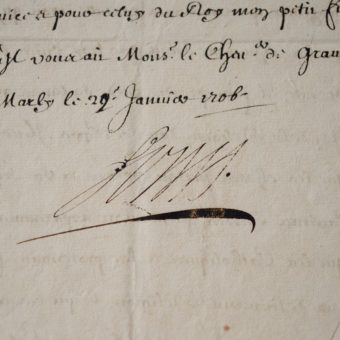 a pour celuy du Roy mon petit fi
Mons.r le Chev.er de Gram
Marly le 29.e Janvier 1706
Louis.